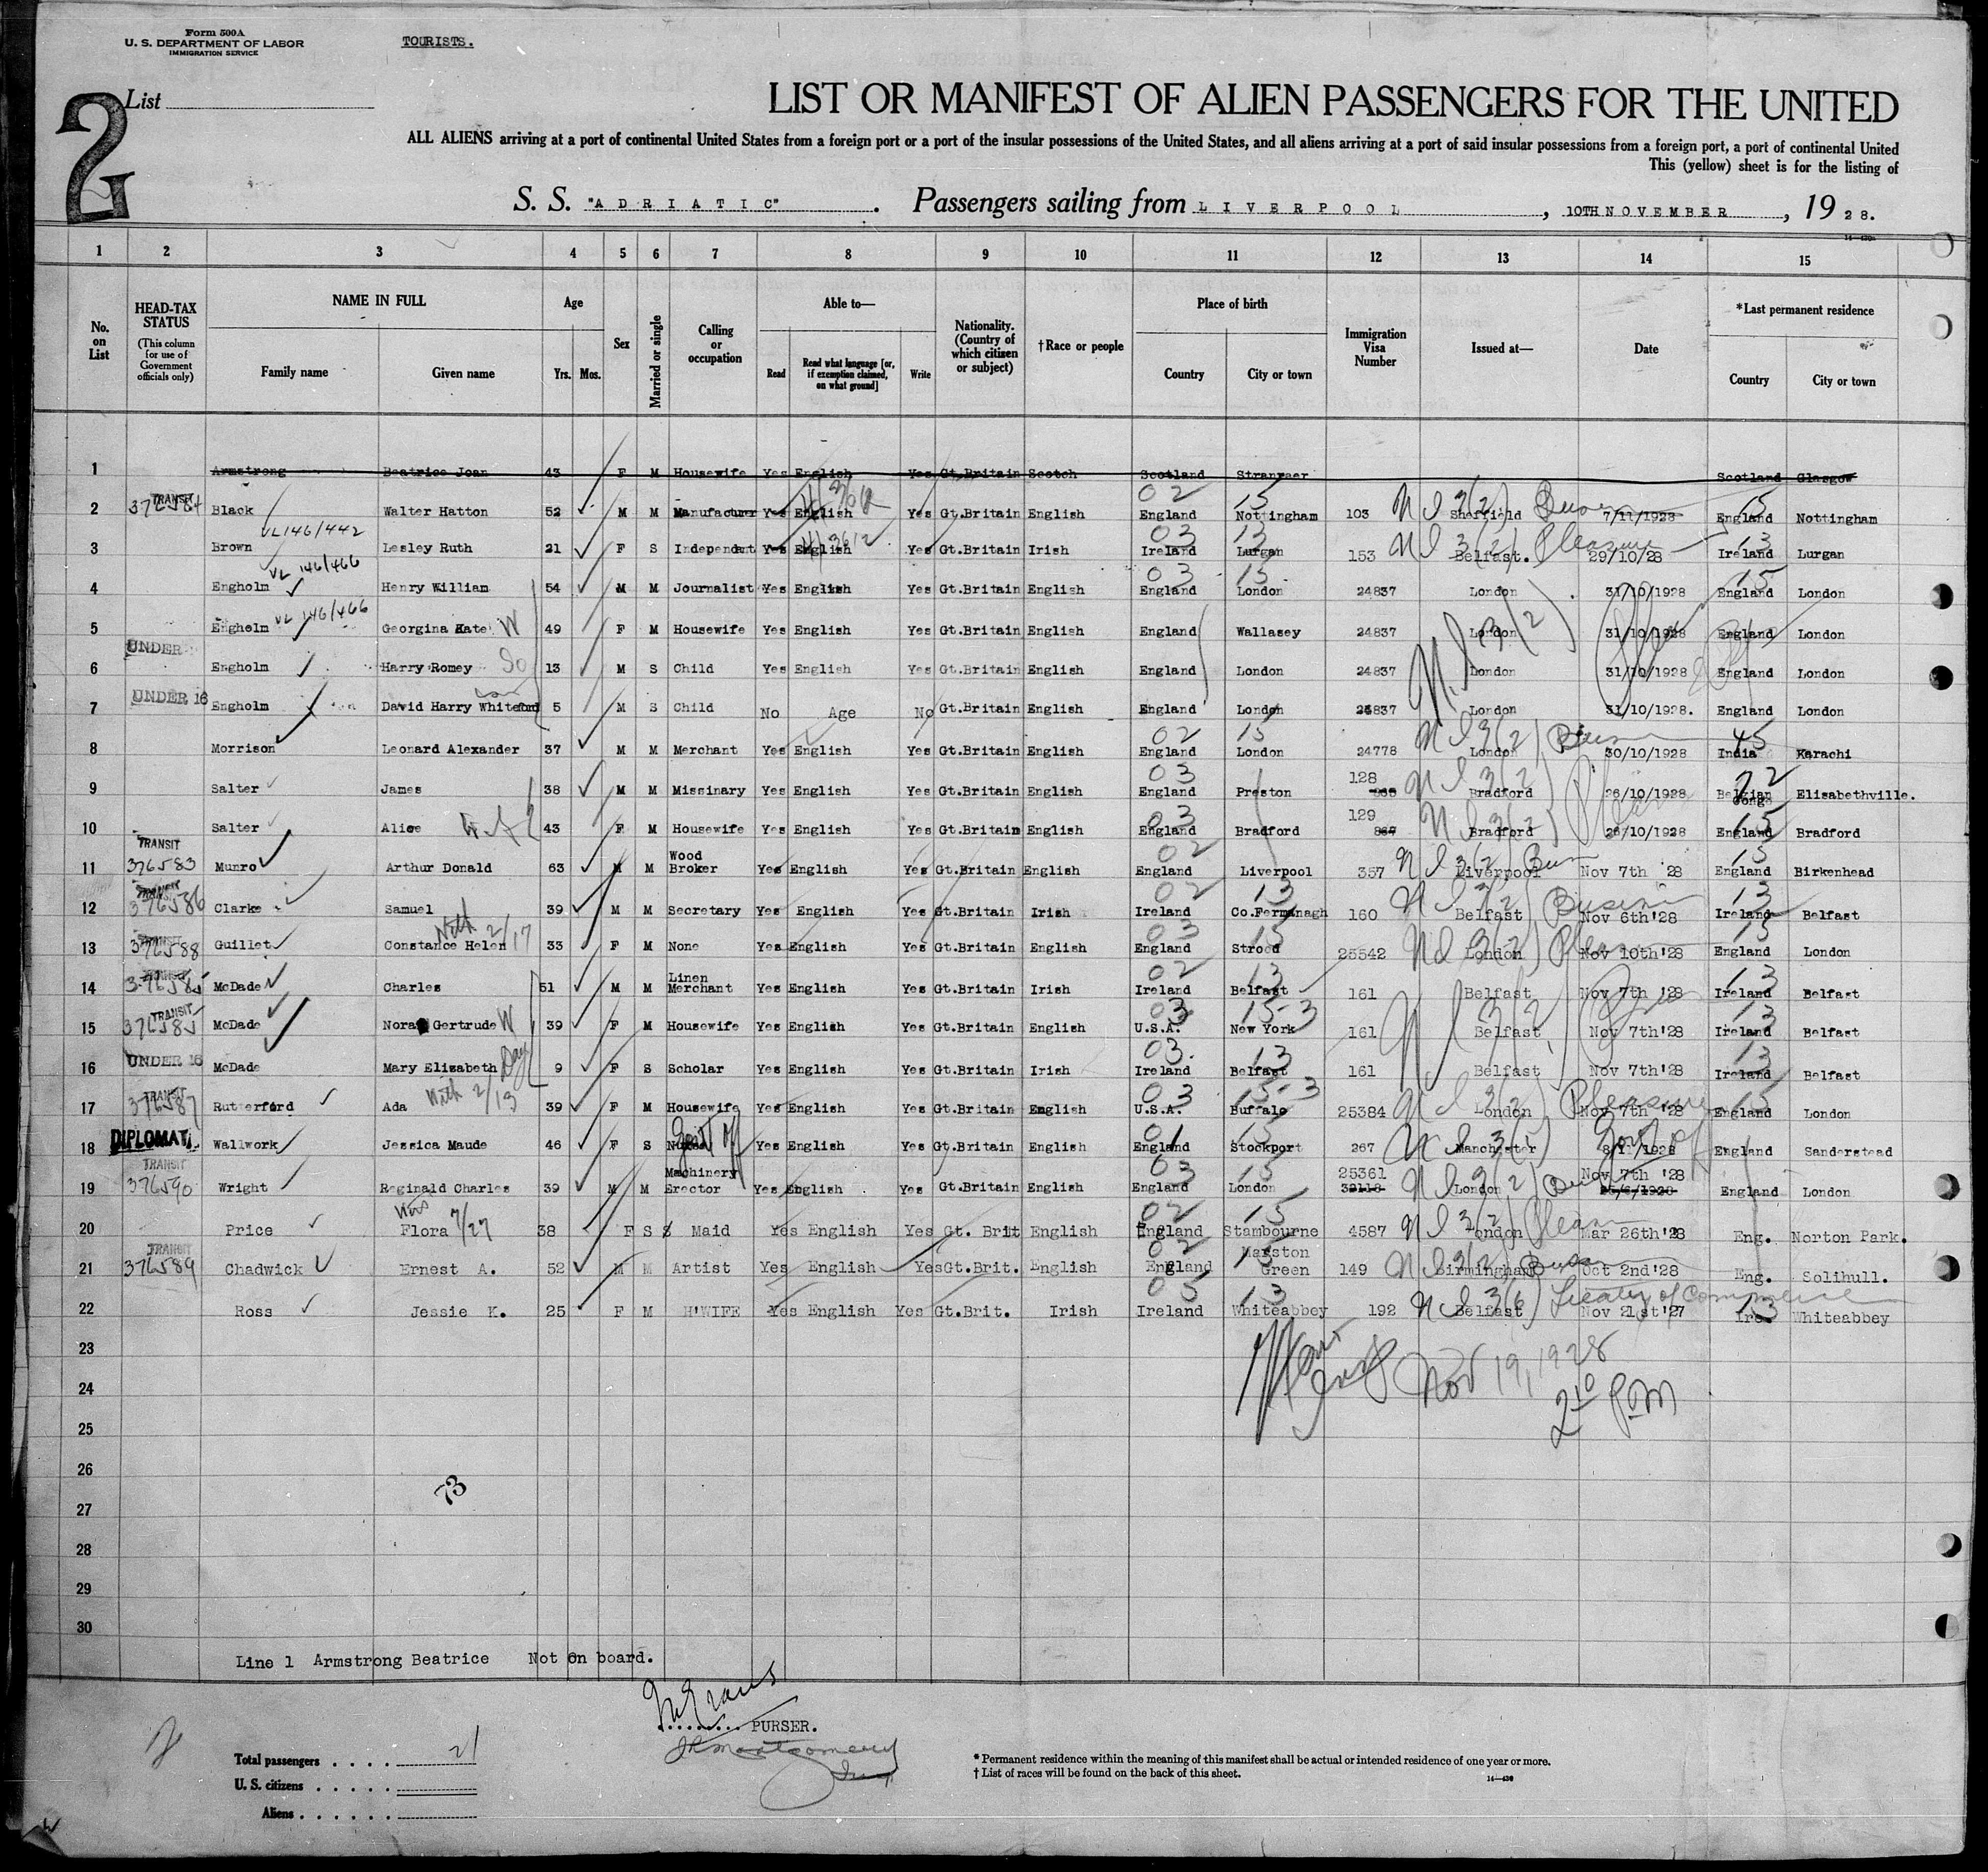 Form 500A
U. S. DEPARTMENT OF LABOR
IMMIGRATION SERVICE
TOURISTS.
2
List
LIST OR MANIFEST OF ALIEN PASSENGERS FOR THE UNITED
ALL ALIENS arriving at a port of continental United States from a foreign port or a port of the insular possessions of the United States, and all aliens arriving at a port of said insular possessions from a foreign port, a port of continental United
This (yellow) sheet is for the listing of
S. S. "ADRIATIC" . Passengers sailing from LIVERPOOL , 10TH NOVEMBER , 19 28.
1 2 3 4 5 6 7 8 9 10 11 12 13 14 15
No. on List
HEAD-TAX STATUS
(This column for use of Government officials only)
NAME IN FULL
Family name Given name
Age
Yrs. Mos.
Sex
Married or single
Calling or occupation
Able to—
Read Read what language [or, if exemption claimed, on what ground] Write
Nationality. (Country of which citizen or subject)
†Race or people
Place of birth
Country City or town
Immigration Visa Number
Issued at—
Date
*Last permanent residence
Country City or town
1 Armstrong Beatrice Joan 43 F M Housewife Yes English Yes Gt.Britain Scotch Scotland Stranraer Scotland Glasgow
TRANSIT 02 15 15
2 376584 Black Walter Hatton 52 M M Manufacturer Yes English Yes Gt.Britain English England Nottingham 103 Sheffield 7/11/1928 England Nottingham
VL146/442 03 13 Pleasure 13
3 Brown Lesley Ruth 21 F S Independent Yes English Yes Gt.Britain Irish Ireland Lurgan 153 Belfast. 29/10/28 Ireland Lurgan
VL 146/466 03 15 15
4 Engholm Henry William 54 M M Journalist Yes English Yes Gt.Britain English England London 24837 London 31/10/1928 England London
VL 146/466
5 Engholm Georgina Kate W 49 F M Housewife Yes English Yes Gt.Britain English England Wallasey 24837 London 31/10/1928 England London
UNDER
6 Engholm Harry Romey 13 M S Child Yes English Yes Gt.Britain English England London 24837 London 31/10/1928 England London
UNDER 16
7 Engholm David Harry Whiteford 5 M S Child No Age No Gt.Britain English England London 24837 London 31/10/1928. England London
02 15 45
8 Morrison Leonard Alexander 37 M M Merchant Yes English Yes Gt.Britain English England London 24778 London 30/10/1928 India Karachi
03 128 22
9 Salter James 38 M M Missinary Yes English Yes Gt.Britain English England Preston Bradford 26/10/1928 Belgian Congo Elisabethville.
129 15
10 Salter Alice 43 F M Housewife Yes English Yes Gt.Britain English 03 England Bradford Bradford 26/10/1928 England Bradford
TRANSIT 02 15
11 376583 Munro Arthur Donald 63 M M Wood Broker Yes English Yes Gt.Britain English England Liverpool 357 Liverpool Nov 7th '28 England Birkenhead
TRANSIT 02 13 13
12 376586 Clarke Samuel 39 M M Secretary Yes English Yes Gt.Britain Irish Ireland Co.Fermanagh 160 Belfast Nov 6th'28 Ireland Belfast
TRANSIT With 2/17 03 15 15
13 376588 Guillet Constance Helen 33 F M None Yes English Yes Gt.Britain English England Strood 25542 London Nov 10th'28 England London
TRANSIT 02 13 13
14 376585 McDade Charles 51 M M Linen Merchant Yes English Yes Gt.Britain Irish Ireland Belfast 161 Belfast Nov 7th '28 Ireland Belfast
TRANSIT 03 15-3 13
15 376585 McDade Nora Gertrude W 39 F M Housewife Yes English Yes Gt.Britain English U.S.A. New York 161 Belfast Nov 7th'28 Ireland Belfast
UNDER 16 03 13 13
16 McDade Mary Elizabeth 9 F S Scholar Yes English Yes Gt.Britain Irish Ireland Belfast 161 Belfast Nov 7th'28 Ireland Belfast
TRANSIT With 2/13 03 15-3 Pleasure 15
17 376587 Rutterford Ada 39 F M Housewife Yes English Yes Gt.Britain English U.S.A. Buffalo 25384 London Nov 7th '28 England London
DIPLOMAT. 01 15
18 Wallwork Jessica Maude 46 F S Yes English Yes Gt.Britain English England Stockport 267 Manchester 8/11/1928 England Sanderstead
TRANSIT 03 15 25361 Nov 7th '28
19 376590 Wright Reginald Charles 39 M M Machinery Erector Yes English Yes Gt.Britain English England London 32118 London England London
7/27 02 15
20 Price Flora 38 F S Maid Yes English Yes Gt. Brit English England Stambourne 4587 London Mar 26th'28 Eng. Norton Park.
TRANSIT 02 15
21 376589 Chadwick Ernest A. 52 M M Artist Yes English Yes Gt.Brit. English England Marston Green 149 Birmingham Oct 2nd'28 Eng. Solihull.
03 13 Treaty of Commerce 13
22 Ross Jessie K. 25 F M H'WIFE Yes English Yes Gt.Brit. Irish Ireland Whiteabbey 192 Belfast Nov 21st'27 Ire. Whiteabbey
23
Nov 19, 1928
24
2 10 PM
25
26
73
27
28
29
30
Line 1 Armstrong Beatrice Not On board.
PURSER.
JR Montgomery
Total passengers . . . . 21
U. S. citizens . . . . .
Aliens . . . . . .
* Permanent residence within the meaning of this manifest shall be actual or intended residence of one year or more.
† List of races will be found on the back of this sheet.
14—430